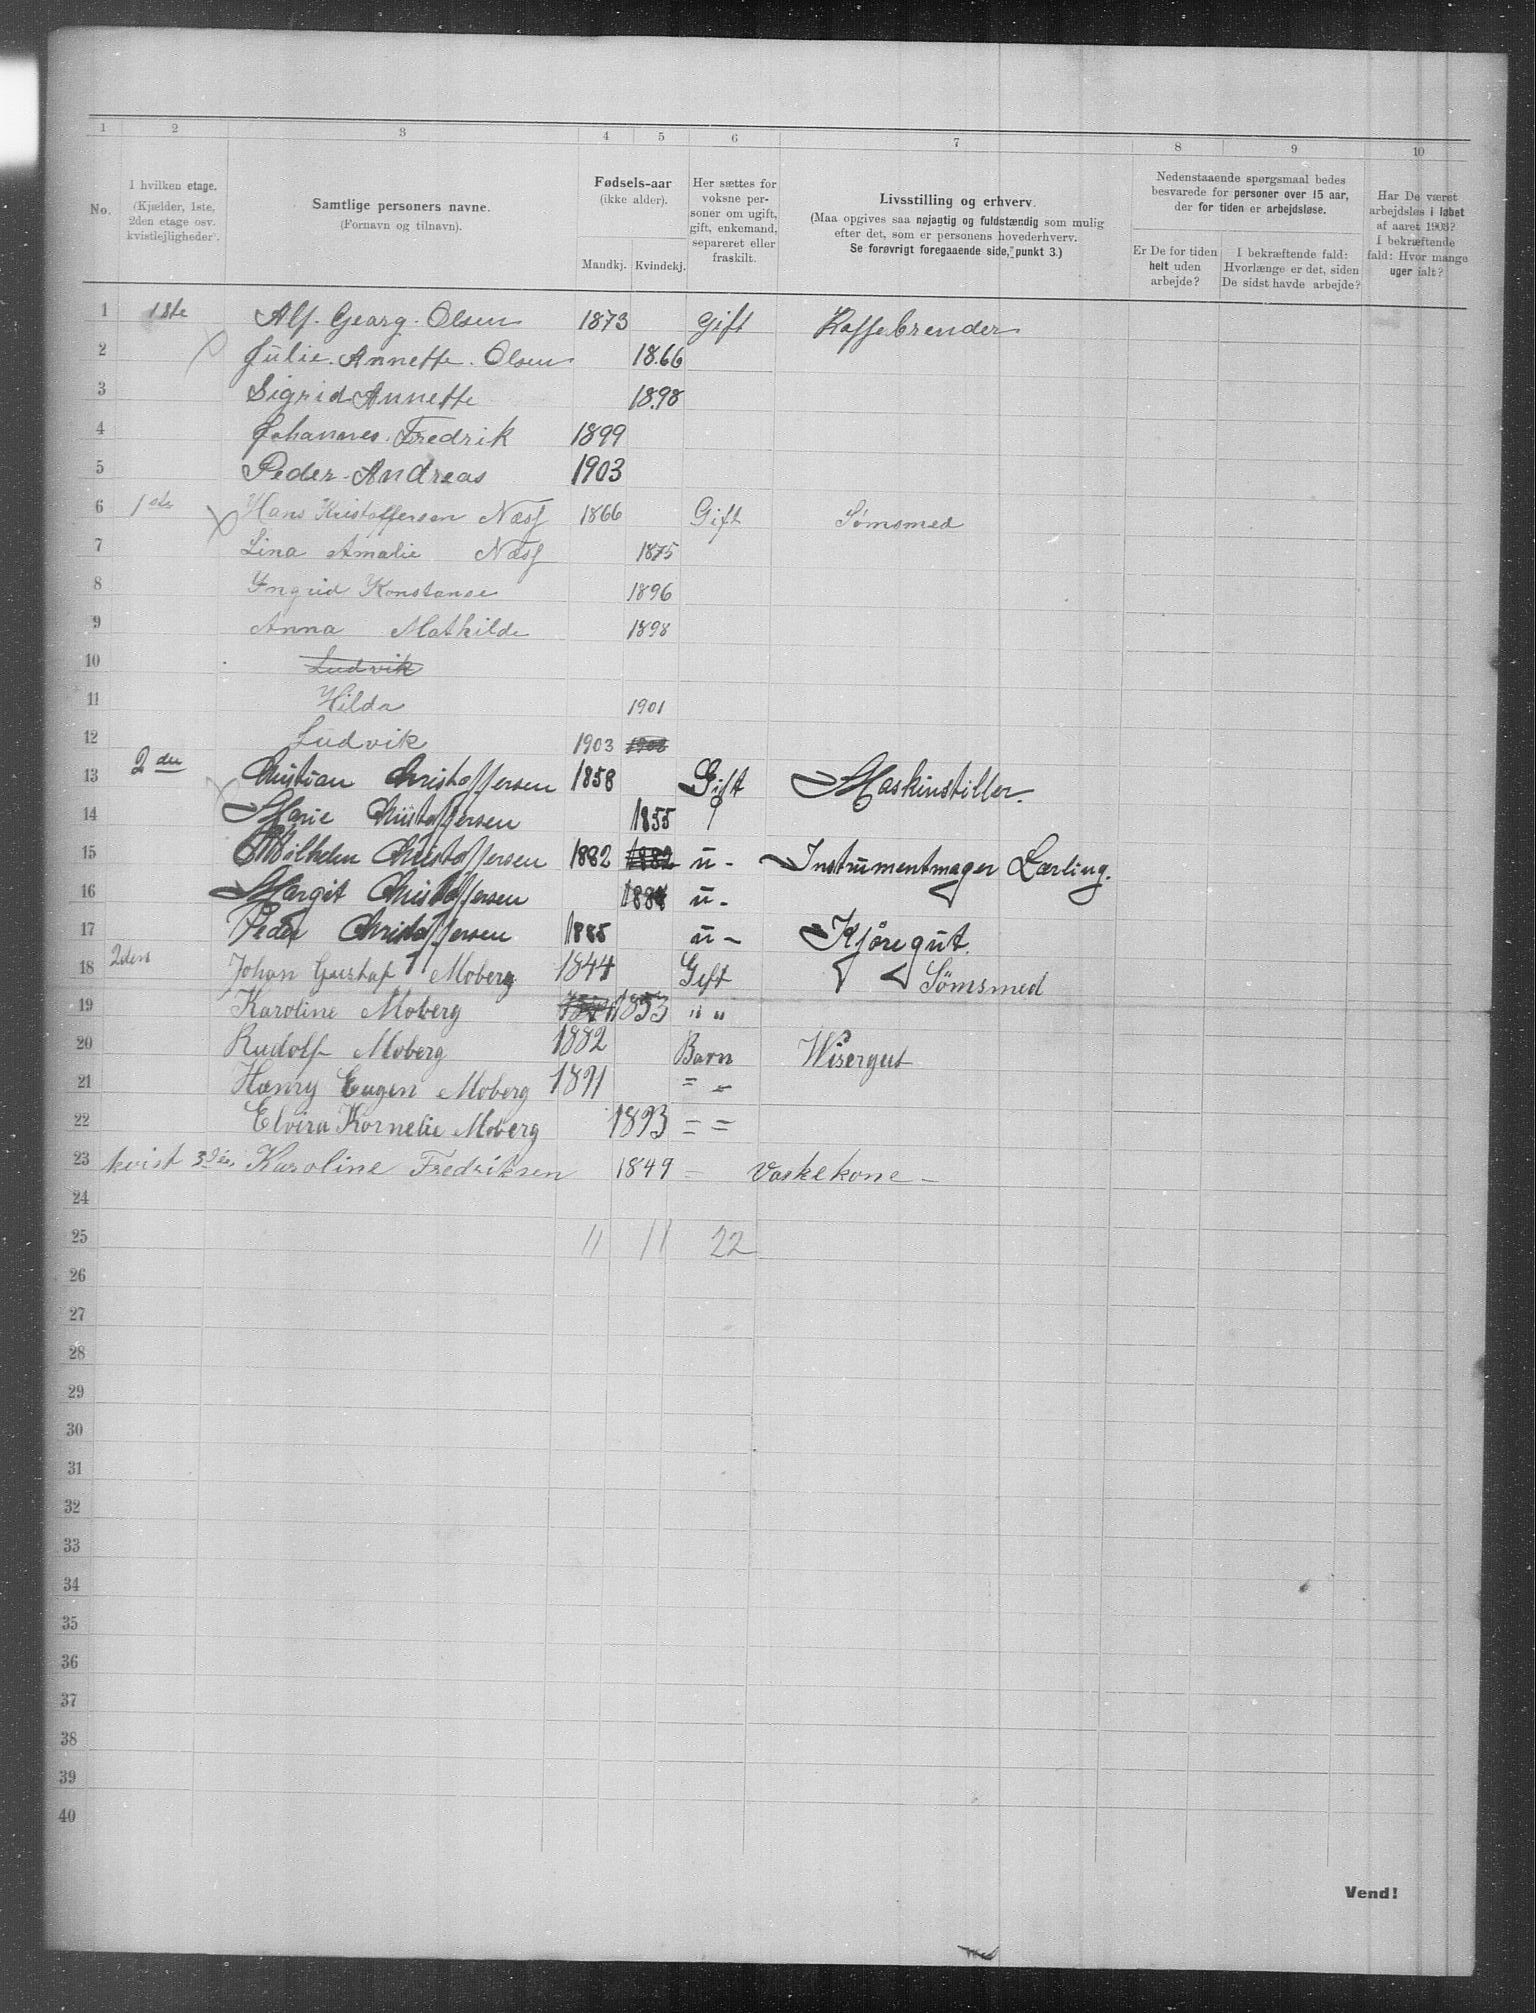 1 2 3 4 5 6 7 8 9 10
No.
I hvilken etage.
(Kjælder, 1ste,
2den etage osv.
kvistlejligheder).
Samtlige personers navne.
(Fornavn og tilnavn).
Fødsels-aar
(ikke alder).
Mandkj. Kvindekj.
Her sættes for
voksne per-
soner om ugift,
gift, enkemand,
separeret eller
fraskilt.
Livsstilling og erhverv.
(Maa opgives saa nøjagtig og fuldstændig som mulig
efter det, som er personens hovederhverv.
Se forøvrigt foregaaende side, punkt 3.)
Nedenstaaende spørgsmaal bedes
besvarede for personer over 15 aar,
der for tiden er arbejdsløse.
Er De for tiden
helt uden
arbejde?
I bekræftende fald:
Hvorlænge er det, siden
De sidst havde arbejde?
Har De været
arbejdsløs i løbet
af aaret 1903?
I bekræftende
fald: Hvor mange
uger ialt?
1 1ste Alf. Georg. Olsen 1873 Gift Kaffebrender
2 Julie. Annette. Olsen 1866
3 Sigrid Annette 1898
4 Johannes. Fredrik 1899
5 Peder. Andreas 1903
6 1ste Hans Kristoffersen Næsf 1866 Gift Sømsmed
7 Lina Amalie Næsf 1875
8 Yngrid Konstanse 1896
9 Anna Mathilde 1898
10 Ludvik
11 Hilda 1901
12 Ludvik 1903
13 2den Christian Christoffersen 1858 Gift Maskinstiller.
14 Marie Christoffersen 1855
15 Wilhelm Christoffersen 1882 1882 u- Instrumentmager Lærling.
16 Margit Christoffersen u-
17 Peder Christoffersen 1885 u- Kjøregut.
18 2den Johan Gustaf Moberg 1844 Gift Sømsmed
19 Karoline Moberg 1853 " "
20 Rudolf Moberg 1882 Barn Wisergut
21 Henry Eugen Moberg 1891 = =
22 Elvira Kornelie Moberg 1893 = =
23 kvist Karoline Fredriksen 1849 = Vaskekone -
24
25 11 11 22
26
27
28
29
30
31
32
33
34
35
36
37
38
39
40
Vend!